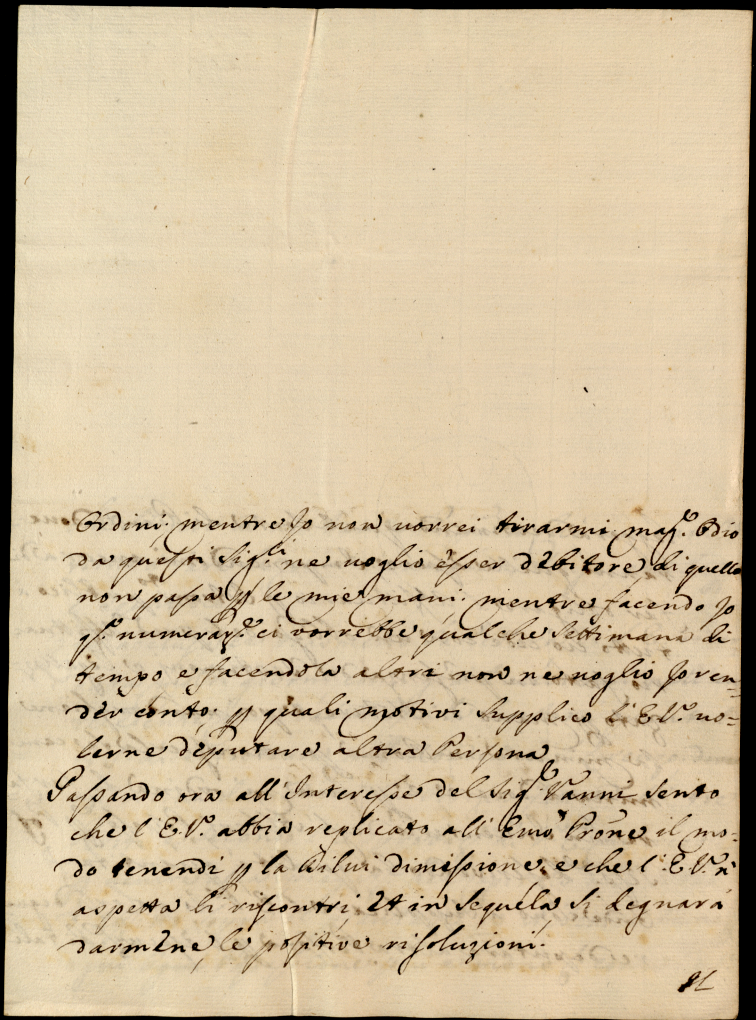 Ordini. mentre Jo non vorrei tirarmi mag.e Odio
da questi Sig.ri ne voglio esser debitore di quello
non passa p le mie mani. mentre facendo Jo
q.ta numeraz.e ci vorrebbe qualche settimana di
tempo e facendola altri non ne voglio Jo ren-
der conto. p quali motivi supplico l'E.V.a vo-
lerne deputare altra Persona
Passando ora all'Interesse del Sig.e Vanni sento
che l'E.V.a abbia replicato all'Emo Prone il mo-
do tenendi p la di lui dimissione, e che l'E.V.a n
aspetta li riscontri, et in sequela si degnarà
darmene le positive risoluzioni.